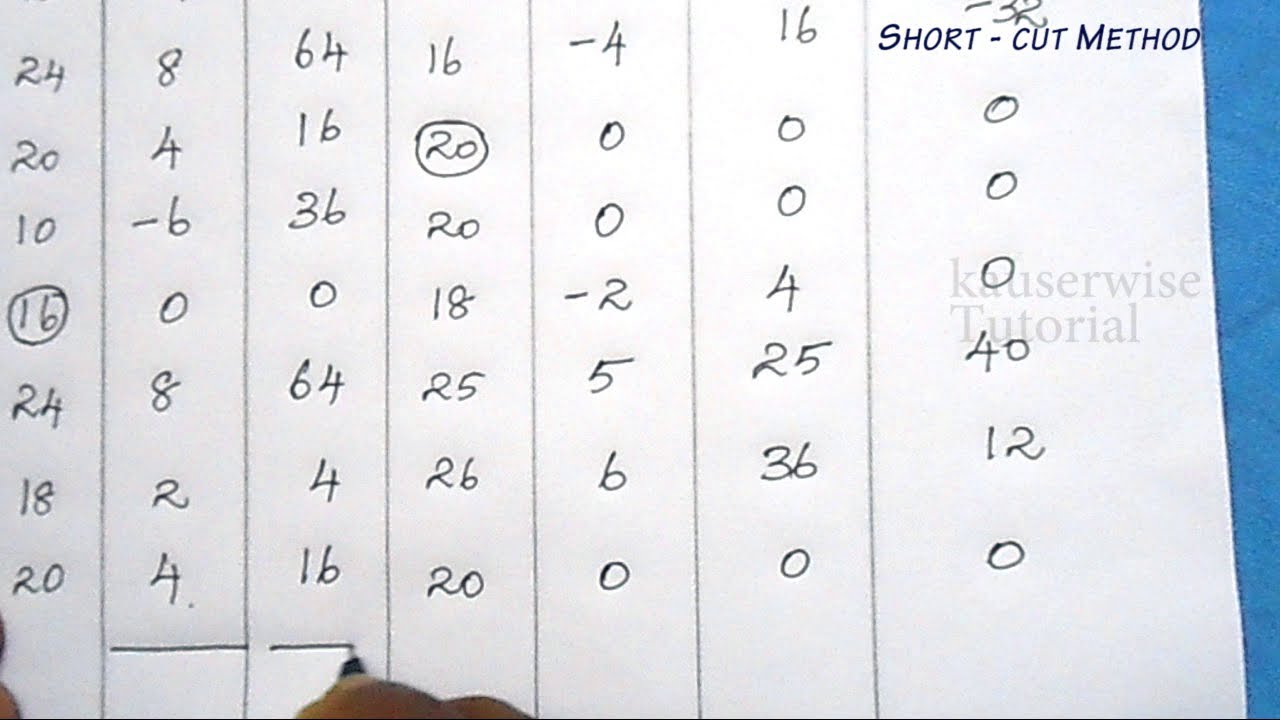 -32
SHORT - CUT METHOD
24 8 64 16 -4 16
20 4 16 20 0 0 0
10 -6 36 20 0 0 0
16 0 0 18 -2 4 0
kauserwise
Tutorial
24 8 64 25 5 25 40
18 2 4 26 6 36 12
20 4 16 20 0 0 0